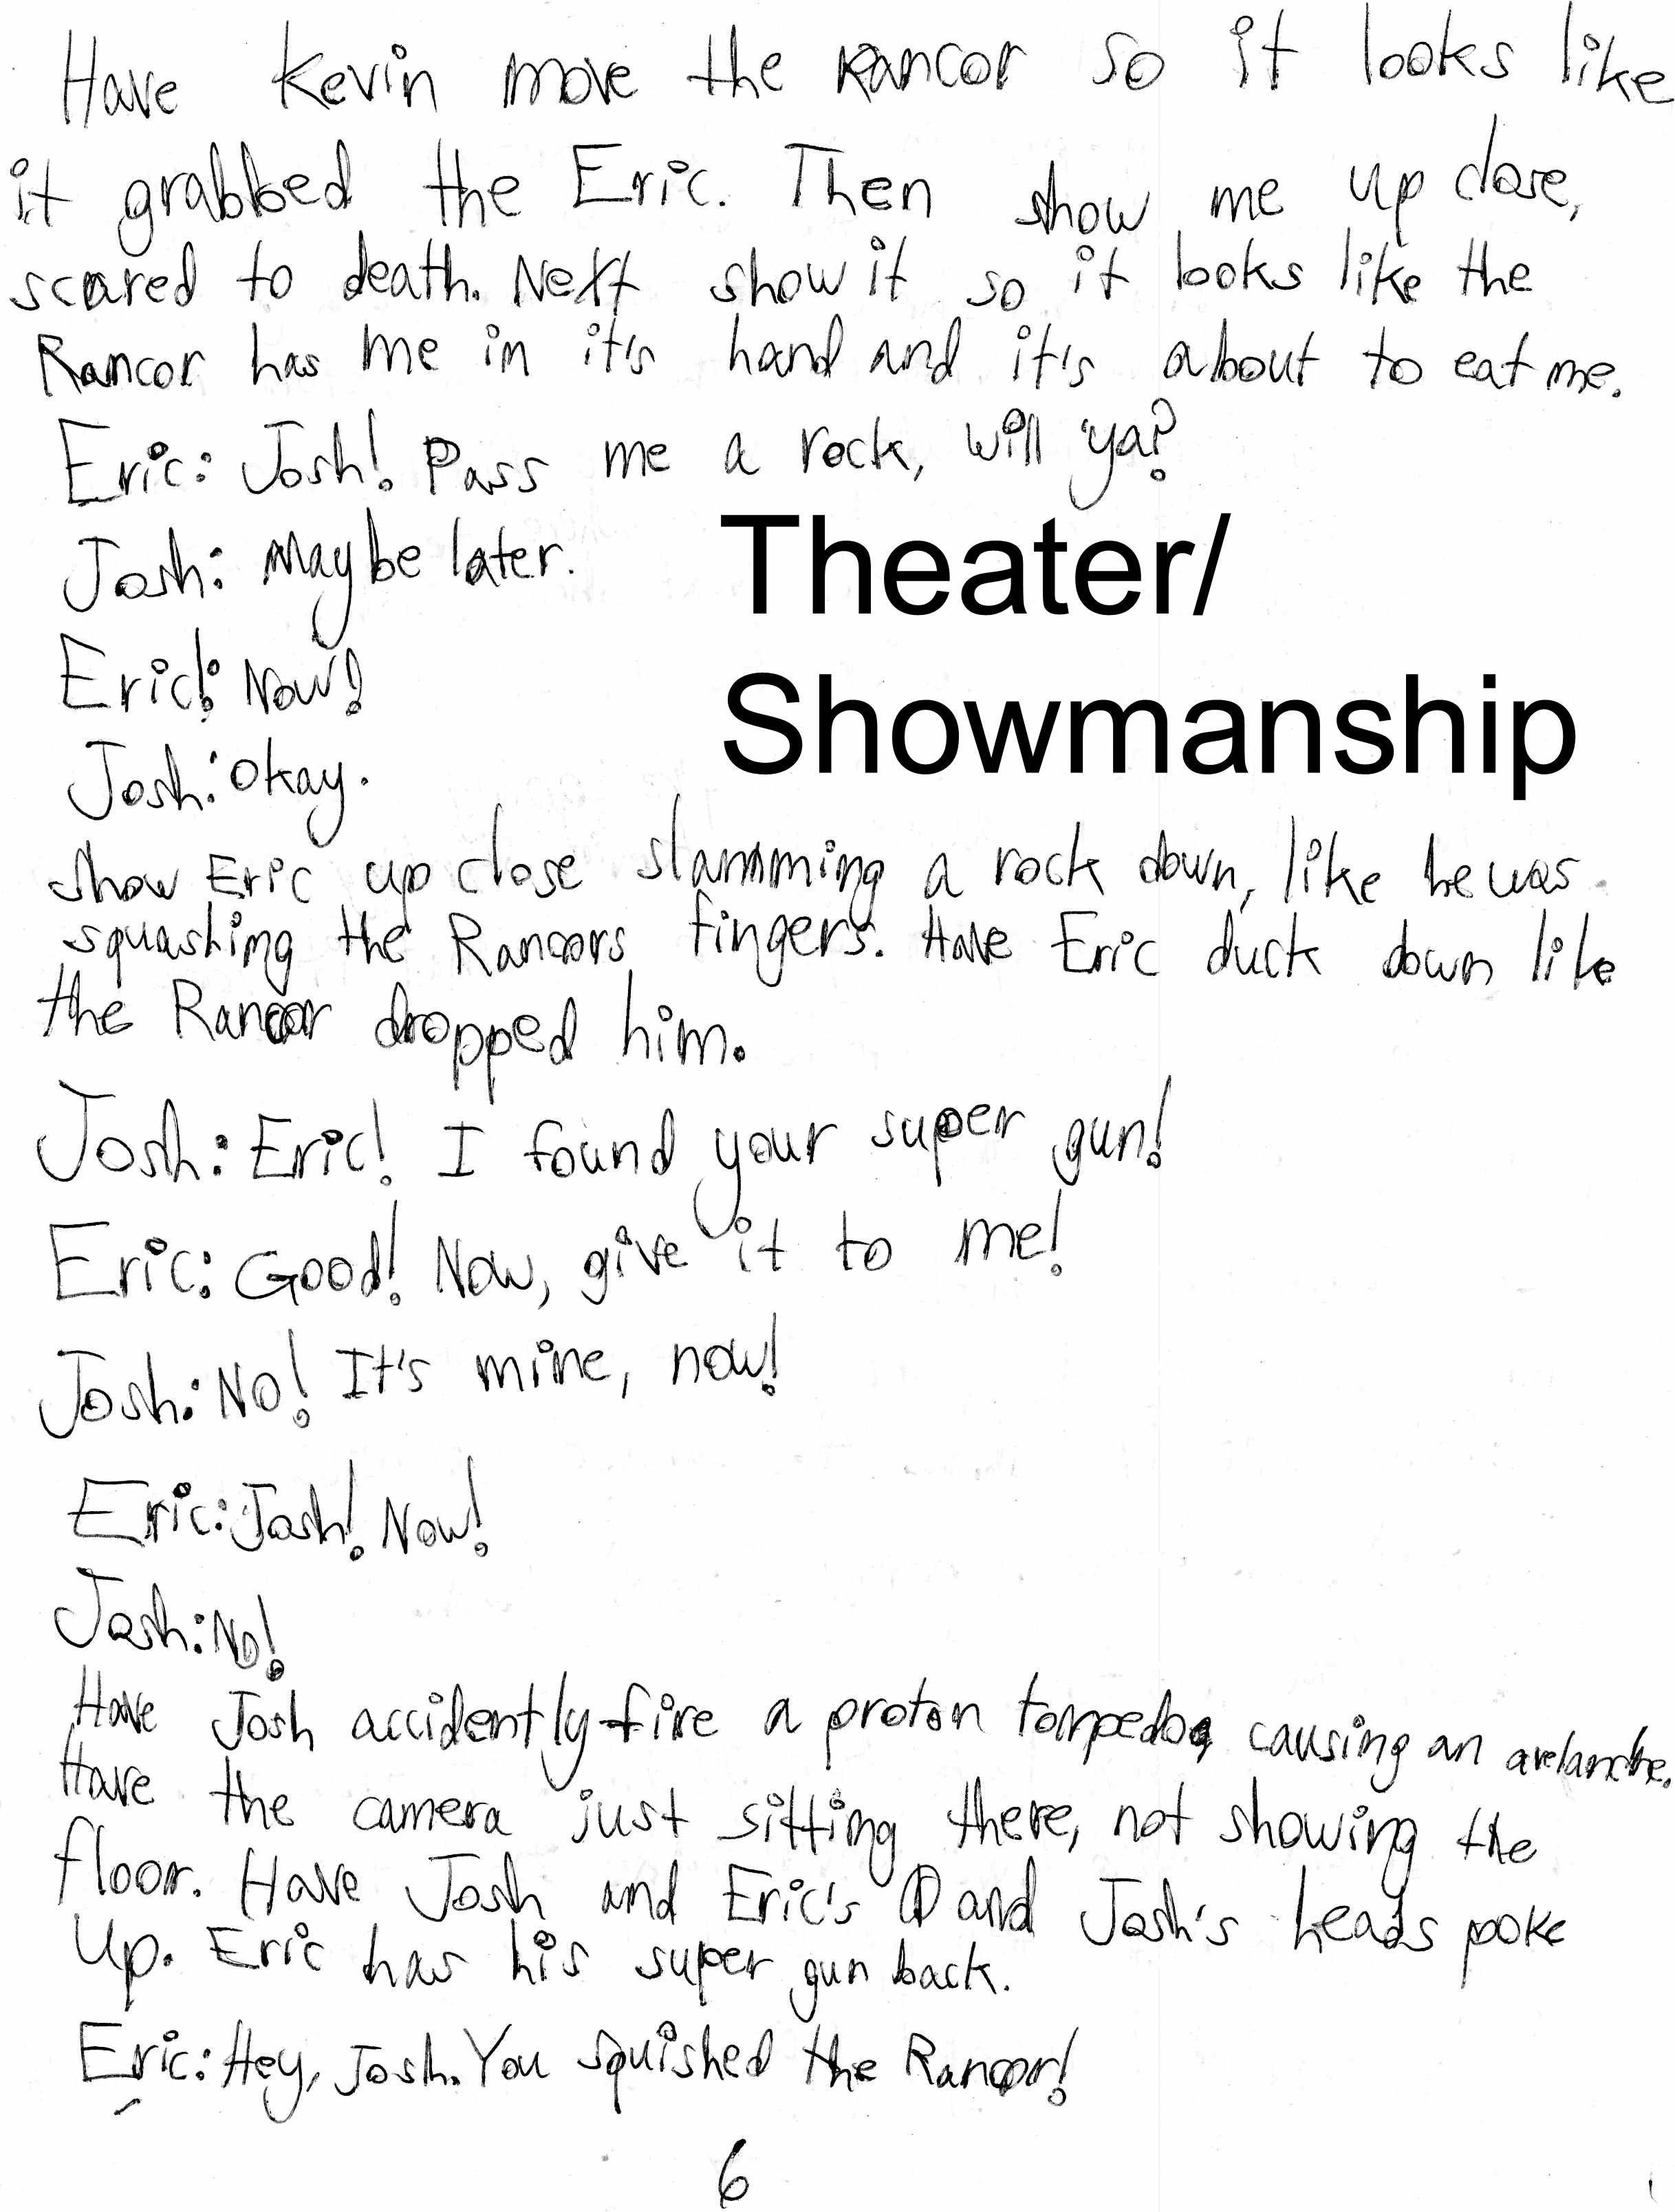 Have Kevin move the Rancor so it looks like
it grabbed the Eric. Then show me up close,
scared to death. Next show it so it looks like the
Rancor has me in it's hand and it's about to eat me.
Eric: Josh! Pass me a rock, will 'ya?
Josh: Maybe later.
Eric: Now!
Josh: Okay.
Theater/
Showmanship
show Eric up close slamming a rock down, like he was
squashing the Rancors fingers. Have Eric duck down like
the Rancor dropped him.
Josh: Eric! I found your super gun!
Eric: Good! Now, give it to me!
Josh: No! It's mine, now!
Eric: Josh! Now!
Josh: No!
Have Josh accidently fire a proton torpedo, causing an avelanche.
Have the camera just sitting there, not showing the
floor. Have Josh and Eric's and Josh's heads poke
up. Eric has his super gun back.
Eric: Hey, Josh. You squished the Rancor!
6